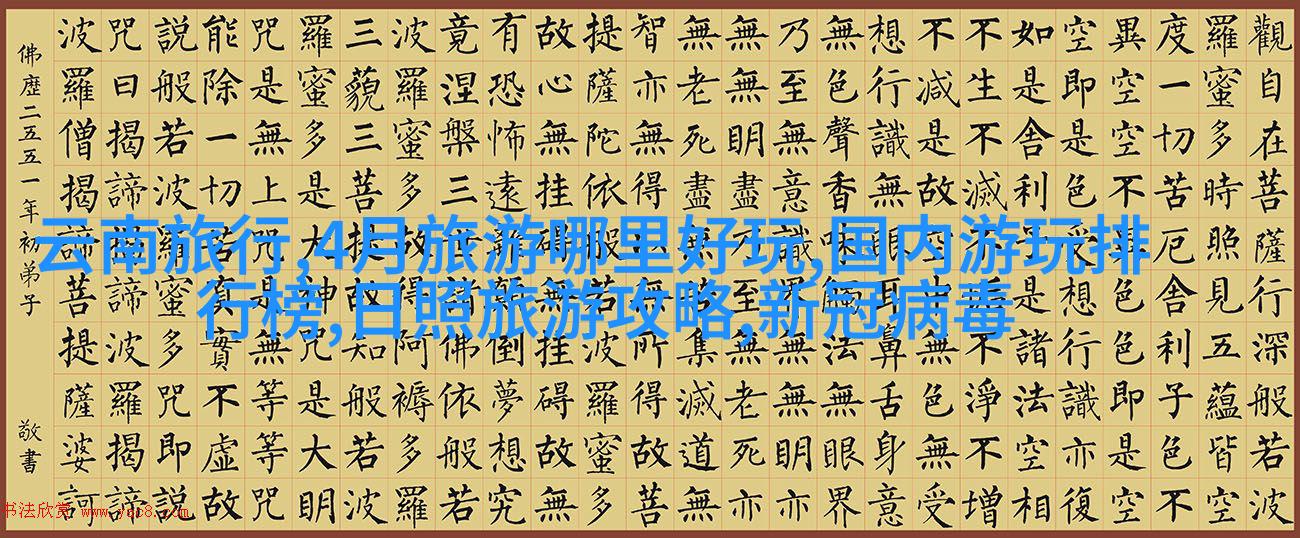 觀自在菩薩行深般若波
羅蜜多時照見五蘊皆空
度一切苦厄舍利子色不
異空空不異色色即是空
空即是色受想行識亦復
如是舍利子是諸法空相
不生不滅不垢不淨不增
不減是故空中無色無受
想行識無眼耳鼻舌身意
無色聲香味觸法無眼界
乃至無意識界無無明亦
無無明盡乃至無老死亦
無老死盡無苦集滅道無
智亦無得以無所得故菩
提薩陀依般若波羅蜜多
故心無挂礙無挂礙故無
有恐怖遠離顛倒夢想究
竟涅槃三世諸佛依般若
波羅蜜多故得阿褥多羅
三藐三菩提故知般若波
羅蜜多是大神咒是大明
咒是無上咒是無等等咒
能除一切苦真實不虛故
說般若波羅蜜多咒即說
咒曰揭諦揭諦波羅揭諦
波羅僧揭諦菩提薩婆訶
佛歷二五五一年初弟子 敬書
云南旅行,4月旅游哪里好玩,国内游玩排
行榜,日照旅游攻略,新冠病毒
书法欣赏 www.yac8.com